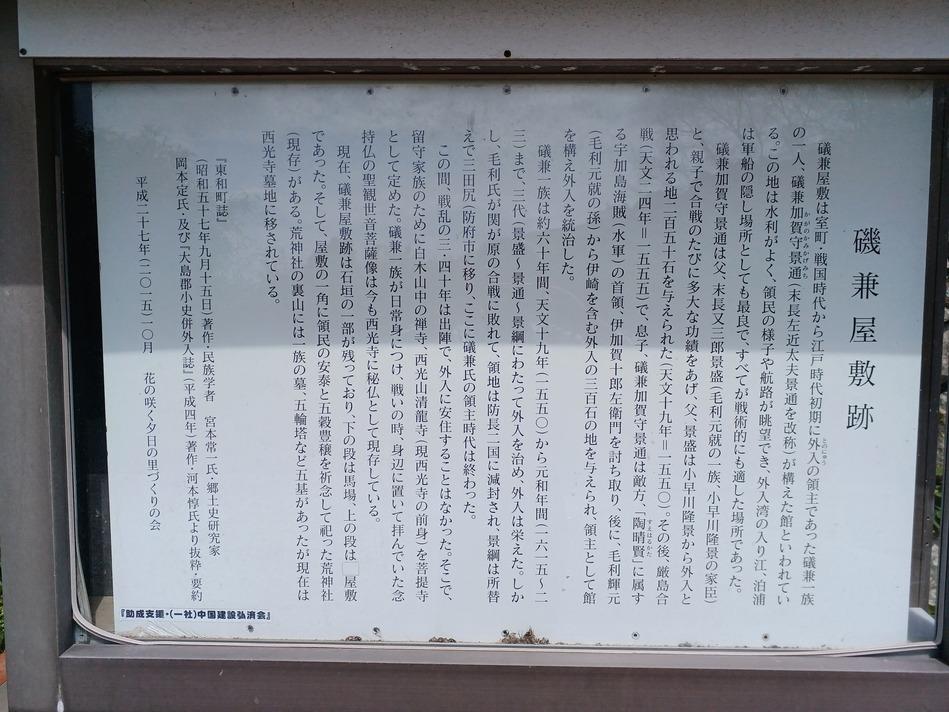 磯兼屋敷跡
磯兼屋敷は室町・戦国時代から江戸時代初期に外入の領主であった磯兼一族
の一人、磯兼加賀守景通(末長左近太夫景通を改称)が構えた館といわれてい
る。この地は水利がよく、領民の様子や航路が眺望でき、外入湾の入り江、泊浦
は軍船の隠し場所としても最良で、すべてが戦術的にも適した場所であった。
磯兼加賀守景通は父、末長又三郎景盛(毛利元就の一族、小早川隆景の家臣)
と、親子で合戦のたびに多大な功績をあげ、父、景盛は小早川隆景から外入と
思われる地二百五十石を与えられた(天文十九年=一五五〇)。その後、厳島合
戦(天文二四年=一五五五)で、息子、磯兼加賀守景通は敵方、「陶晴賢」に属す
る宇加島海賊(水軍)の首領、伊加賀十郎左衛門を討ち取り、後に、毛利輝元
(毛利元就の孫)から伊崎を含む外入の三百石の地を与えられ、領主として館
を構え外入を統治した。
磯兼一族は約六十年間、天文十九年(一五五〇)から元和年間(一六一五〜二
三)まで、三代(景盛〜景通〜景綱にわたって外入を治め、外入は栄えた。しか
し、毛利氏が関が原の合戦に敗れて、領地は防長二国に減封され、景綱は所替
えで三田尻(防府市に移り、ここに磯兼氏の領主時代は終わった。
この間、戦乱の三・四十年は出陣で、外入に安住することはなかった。そこで、
留守家族のために白木山中の禅寺、西光山清龍寺(現西光寺の前身)を菩提寺
として定めた。磯兼一族が日常身につけ、戦いの時、身辺に置いて拝んでいた念
持仏の聖観世音菩薩像は今も西光寺に秘仏として現存している。
現在、磯兼屋敷跡は石垣の一部が残っており、下の段は馬場、上の段は 屋敷
であった。そして、屋敷の一角に領民の安泰と五穀豊穣を祈念して祀った荒神社
(現存)がある。荒神社の裏山には一族の墓、五輪塔など五基があったが現在は
西光寺墓地に移されている。
『東和町誌』
(昭和五十七年九月十五日)著作・民族学者 宮本常一氏・郷土史研究家
岡本定氏・及び『大島郡小史併外入誌』(平成四年)著作・河本惇氏より抜粋・要約
平成二十七年(二〇一五)一〇月 花の咲く夕日の里づくりの会
『助成支援・(一社)中国建設弘済会』
かがのかみかげみち
とのにゅう
すえはるかた